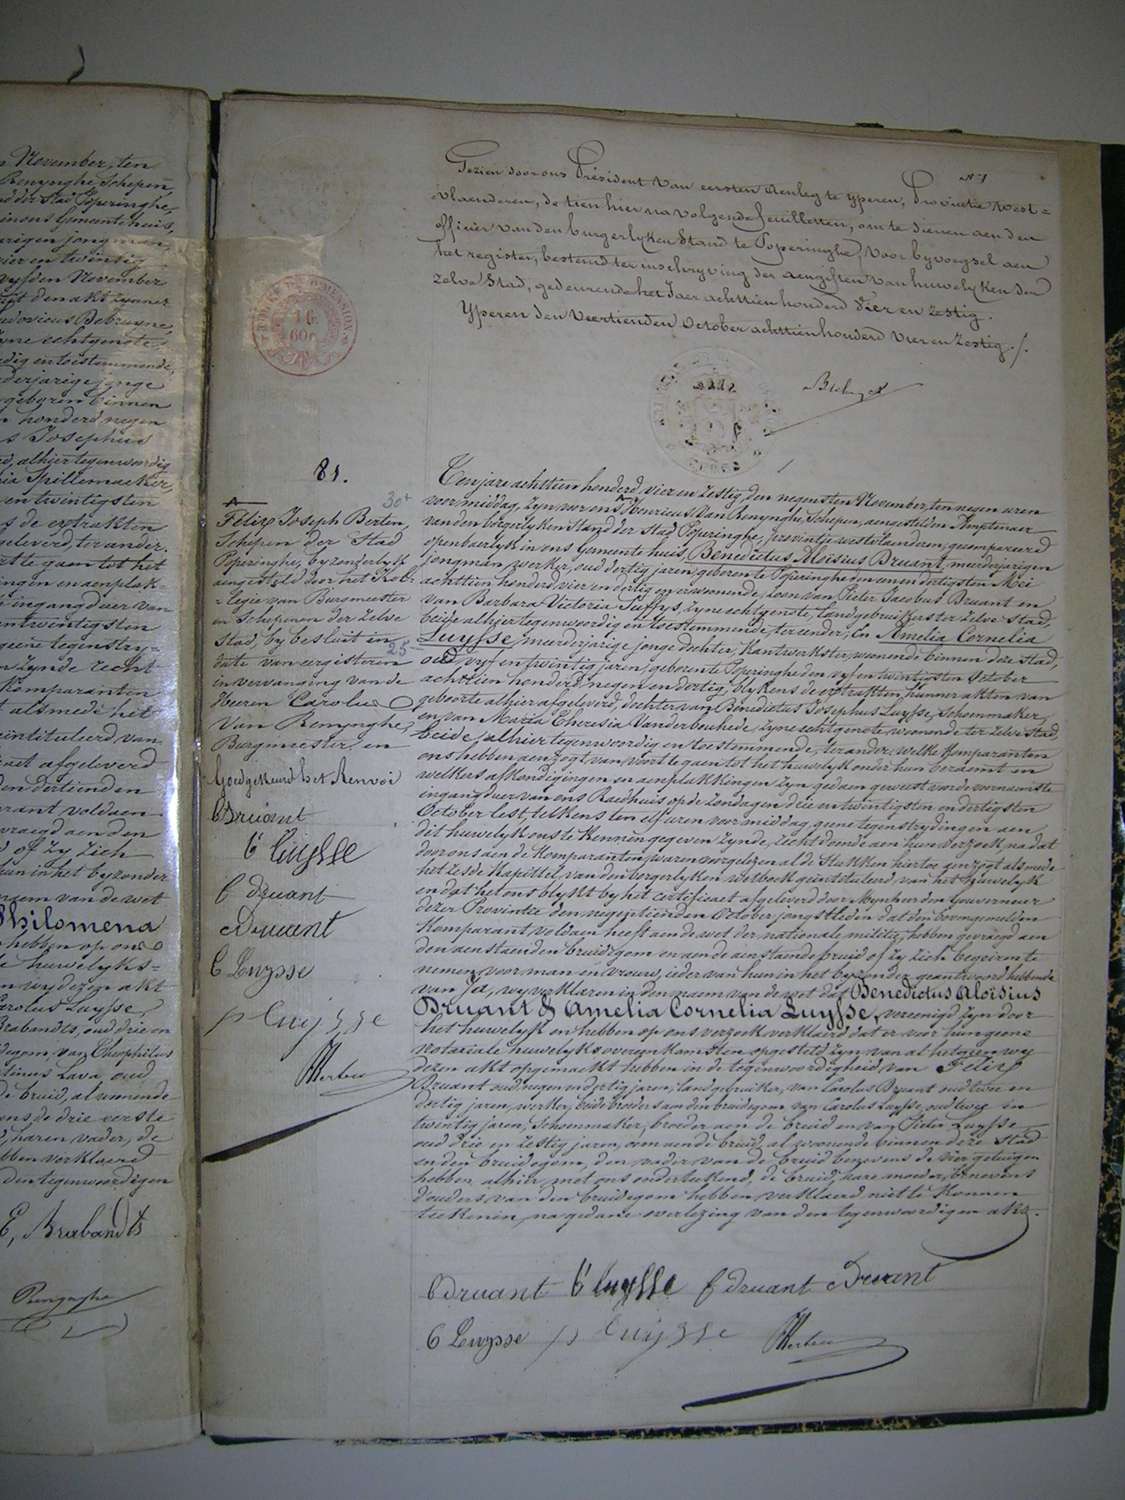 n November, ten
Renynghe, Schepen
der Stad Poperinghe,
in ons gemeentehuis,
jarigen jongman,
vier en twintig
November
echtgenote
geboren binnen
honderd negen
s Josephus
alhier tegenwoordig
Spillemaeker,
en twintigsten
s de extrakten
geleverd, ter ander.
te gaen tot het
ingen en aenplak-
ingang duer van
twintigsten
geene tegenstry-
zynde recht
Komparanten
alsmede het
geintituleerd, van
caet afgeleverd
den dertienden
voldaen
vraegd aen den
of zy zich
hun in het byzonder
naem van de wet
Philomena
hebben op ons
huwelyks-
wy dezen akt
Carolus Luysse,
Brabandts, oud drie en
degom, van Theophilus
Lava oud
de bruid, al wonende
de drie eerste
haren vader, de
hebben verklaerd
den tegenwoordigen
E, Brabandts
Renynghe
N° 1
Gezien door ons Président van eersten Aenleg te Yperen, Provintie West-
vlaenderen, de tien hier na volgende feuilletten, om te dienen aen den
officier van den burgerlyken Stand te Poperinghe, voor byvoegsel aen
het register, bestemd ter inschryving der aengiften van huwelyken der
zelve Stad, gedeurende het Jaer achttien honderd Vier en Zestig.
Yperen den Veertienden October achttien honderd vier en Zestig./.
81.
Félix Joseph Berten,
Schepen der Stad
Poperinghe, byzonderlyk
aengesteld door het Kol-
legie van Burgmeester
en Schepenen der zelve
Stad, by besluit in
date van eergisteren
in vervanging van de
Heeren Carolus
Van Renynghe,
Burgmeester, en
Goedgekeurd het Renvoi
BDruant
C Luysse
C druant
Druant
C Luysse
p Luijsse
FBerten
30+
25-
Ten jare achttien honderd vier en zestig, den negensten November, ten negen uren
voormiddag, zyn voor ons Henricus Van Renynghe, Schepen, aengestelden Amptenaer
van den borgerlyken Stand der Stad Poperinghe, provintje westvlaenderen, gecompareerd
openbaerlyk in ons gemeente huis, Benedictus Aloïsius Druant, meerderjarigen
jongman, werker, oud dertig jaren, geboren te Poperinghe den een en dertigsten Mei
achttien honderd vier en dertig en er wonende, zoon van Pieter Jacobus Druant en
van Barbara Victoria Suffys, zyne echtgenote, landgebruikers ter zelve stad,
beide alhier tegenwoordig en toestemmende, ter eender, En Amelia Cornelia
Luysse, meerderjarige jonge dochter, kantwerkster, wonende binnen deze stad,
oud vyf en twintig jaren, geboren te Poperinghe den vyf en twintigsten October
achttien honderd negen en dertig, blykens de extrakten hunner akten van
geboorte alhier afgeleverd, dochter van Benedictus Josephus Luysse, Schoenmaker,
en van Maria Theresia Vanderbeuhede, zyne echtgenote, wonende ter zelve stad
beide, alhier tegenwoordig en toestemmende, ter ander: welke Komparanten
ons hebben aenzogt van voort te gaen tot het huwelyk onder hun beraemt en
welkers afkondigingen en aenplakkingen zyn gedaen geweest voor de voornaemste
ingangduer van ons Raedhuis op de zondagen drie en twintigsten en dertigsten
October lest, telkens ten elf uren voormiddag, geene tegenstrydingen aen
dit huwelyk ons te Kennen gegeven zynde, recht doende aen hun verzoek, na dat
door ons aen de Komparanten waren voorgelezen al de Stukken hiertoe gevoegt alsmede
het zesde Kapittel van den borgerlyken wetboek geïntituleerd, van het huwelyk
en dat het ons blykt by het certificaet afgeleverd door Mynheer den Gouverneur
dezer Provintie den negentienden October jongstleden dat den bovengemelden
Komparant voldaen heeft aen de wet der nationale militie, hebben gevraegd aen
den aenstaenden bruidegom en aen de aenstaende bruid of zy zich begeirte
nemen voor man en vrouw, ieder van hun in het byzonder geantwoord hebbende
van Ja, wy verklaren in den naem van de wet dat Benedictus Aloïsius
Druant & Amelia Cornelia Luysse, vereenigd zyn door
het huwelyk en hebben op ons verzoek verklaerd dat er voor hun geene
notariale huwelyksovereenkomsten opgesteld zyn van al hetgeen wy
dezen akt opgemaekt hebben in de tegenwoordigheid van Felix
Druant oud negen en dertig jaren, landgebruiker, van Carolus Bruant oud twee en
dertig jaren, werker, beide broeders aen den bruidegom van Carolus Luysse, oud twee en
twintig jaren, Schoenmaker, broeder aen de bruid en van Pieter Luysse
oud drie en zestig jaren, oom aen de bruid, al wonende binnen deze Stad
en den bruidegom, den vader van de bruid benevens de vier getuigen
hebben alhier met ons onderteekend, de bruid, hare moeder, benevens
d'ouders van den bruidegom hebben verklaerd niet te konnen
teekenen, na gedane overlezing van den tegenwoordigen akt.
BDruant B Luysse f druant CDruant
C Luysse p Luijsse FBerten